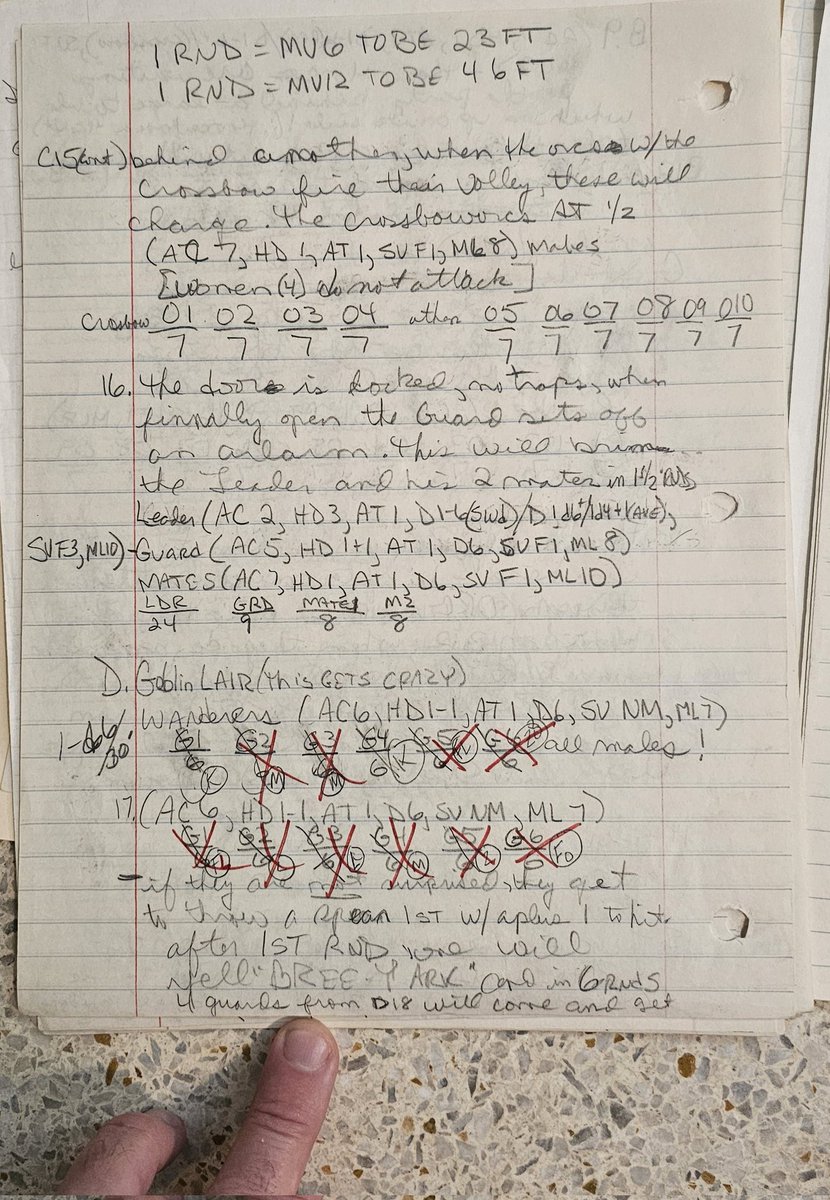 1 RND = MV6 TO BE 23 FT
1 RND = MV12 TO BE 46 FT
C15(cont) behind another, when the orcs w/the
Crossbow fire their volley, these will
charge. The crossboworcs AT 1/2
(AC 7, HD 1, AT 1, SV F1, ML 8) Males
[Women (4) do not attack]
Crossbow 01 02 03 04 other 05 06 07 08 09 010
7 7 7 7 7 7 7 7 7 7
16. The door is locked, no traps, when
finnally open the Guard sets off
an alarm. This will bring
the Leader and his 2 mates in 1 1/2 RNDS
Leader (AC 2, HD3, AT 1, D1-6(SWd)/
SVF3, ML10) - Guard (AC5, HD 1+1, AT 1, D6, SVF1, ML 8)
MATES (AC 7, HD1, AT 1, D6, SV F1, ML10)
LDR GRD MATE1 M2
24 9 8 8
D. Goblin LAIR (this GETS CRAZY)
Wanderers (AC6, HD1-1, AT 1, D6, SV NM, ML7)
1-d6/30' G1 G2 G3 G4 G5 G6 all males!
6 6 6 6 6 6
K M M K
17. (AC 6, HD1-1, AT 1, D6, SV NM, ML 7)
G1 G2 G3 G4 G5 G6
6 6 6 6 6 6
M Fo
- if they are not surprised, they get
to throw a spear 1ST w/ a plus 1 to hit
after 1ST RND one will
yell "BREE-Y ARK" and in 6 RNDS
4 guards from D18 will come and get